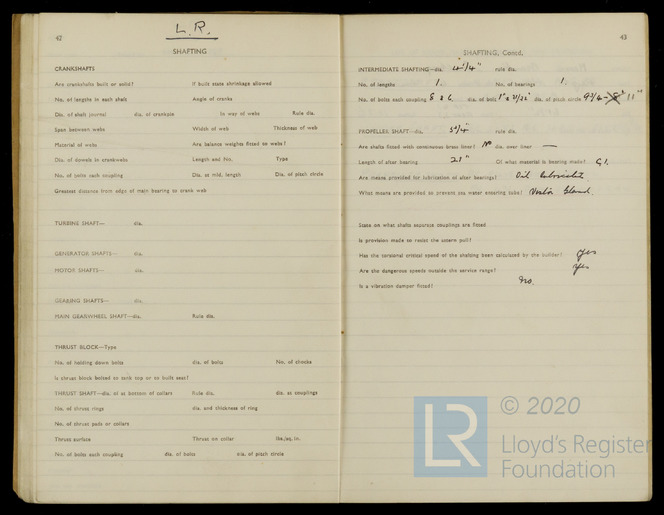 42
L.R.
SHAFTING
CRANKSHAFTS
Are crankshafts built or solid? If built state shrinkage allowed
No. of lengths in each shaft Angle of cranks
Dia. of shaft journal dia. of crankpin In way of webs Rule dia.
Span between webs Width of web Thickness of web
Material of webs Are balance weights fitted to webs?
Dia. of dowels in crankwebs Length and No. Type
No. of bolts each coupling Dia. at mid. length Dia. of pitch circle
Greatest distance from edge of main bearing to crank web
TURBINE SHAFT— dia.
GENERATOR SHAFTS— dia.
MOTOR SHAFTS— dia.
GEARING SHAFTS— dia.
MAIN GEARWHEEL SHAFT—dia. Rule dia.
THRUST BLOCK—Type
No. of holding down bolts dia. of bolts No. of chocks
Is thrust block bolted to tank top or to built seat?
THRUST SHAFT—dia. of at bottom of collars Rule dia. dia. at couplings
No. of thrust rings dia. and thickness of ring
No. of thrust pads or collars
Thrust surface Thrust on collar lbs./sq. in.
No. of bolts each coupling dia. of bolts dia. of pitch circle
43
SHAFTING, Contd.
INTERMEDIATE SHAFTING—dia. 4 3/4" rule dia.
No. of lengths 1. No. of bearings 1.
No. of bolts each coupling 8 & 6 dia. of bolt 1" & 31/32" dia. of pitch circle 9 3/4 - 11"
PROPELLER SHAFT—dia. 5 1/4" rule dia.
Are shafts fitted with continuous brass liner? No dia. over liner —
Length of after bearing 21" Of what material is bearing made? C.I.
Are means provided for lubrication of after bearings? Oil lubricated
What means are provided to prevent sea water entering tube? Gland.
State on what shafts separate couplings are fitted
Is provision made to resist the astern pull?
Has the torsional critical speed of the shafting been calculated by the builder? Yes
Are the dangerous speeds outside the service range? Yes
Is a vibration damper fitted? No.
LR
© 2020
Lloyd's Register
Foundation